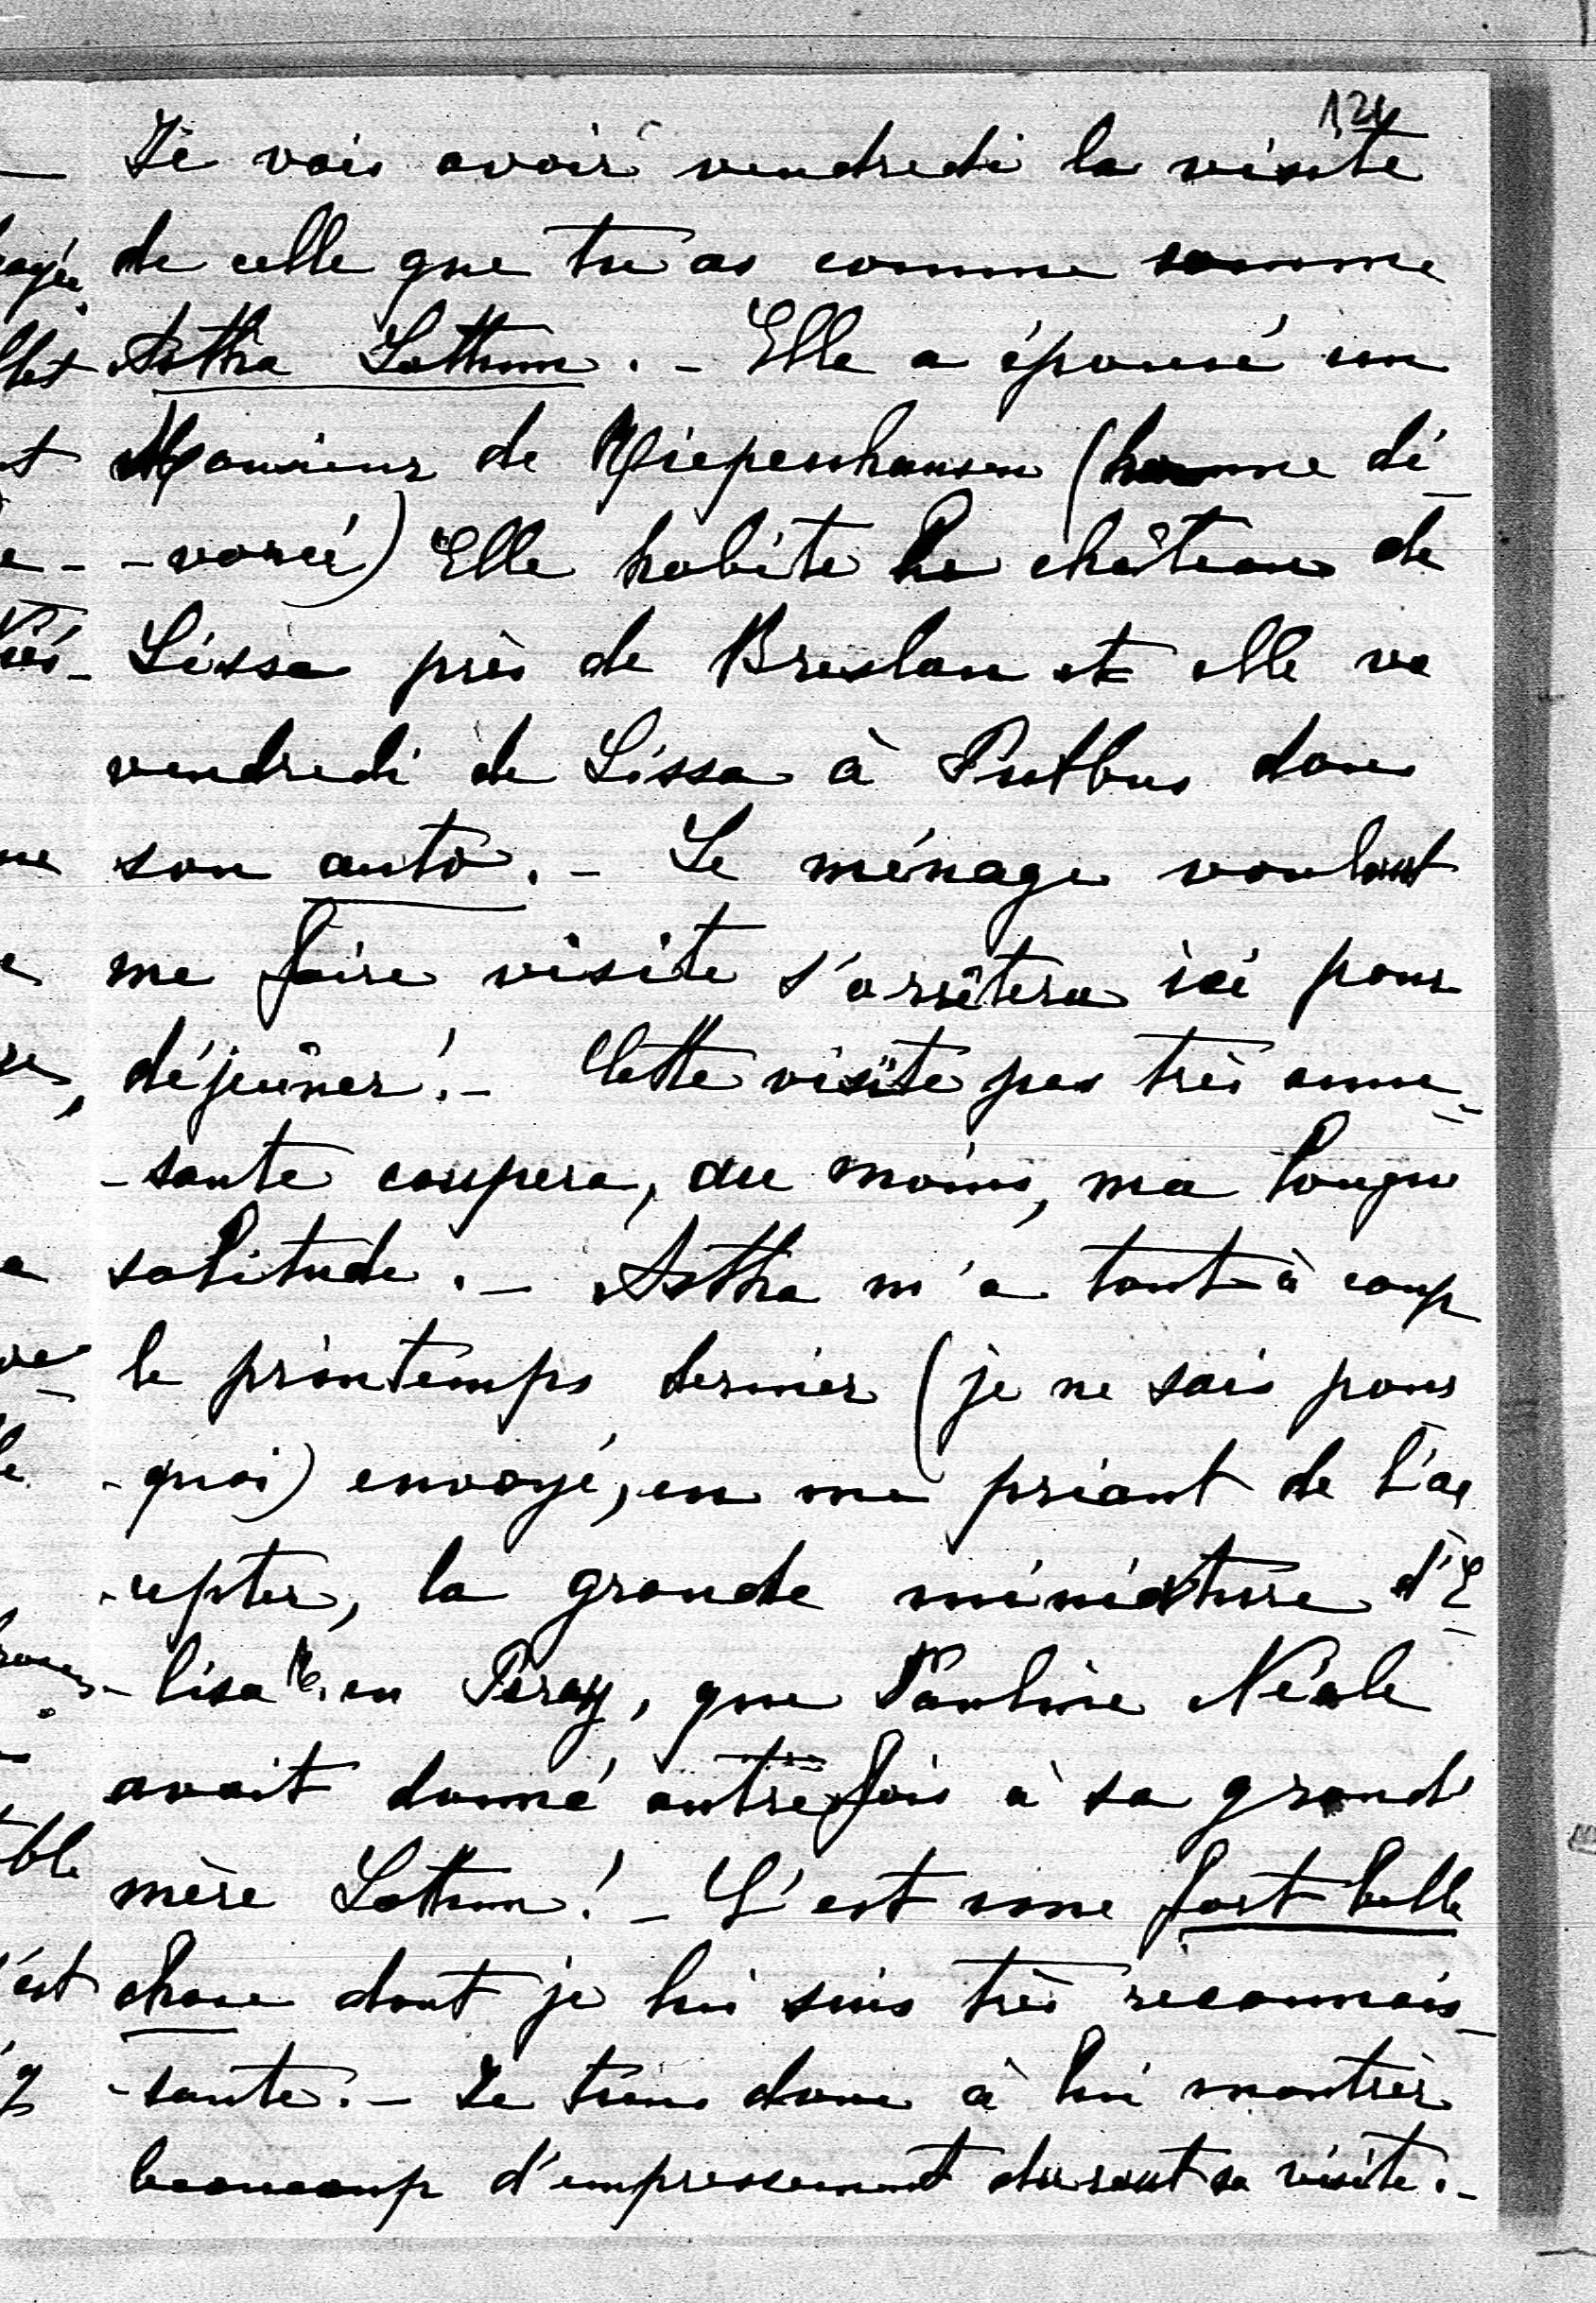 124
Je vais avoir vendredi la visite
de celle que tu as comme nomme
Asttha Lottum. - Elle a épousé un
Monsieur de Riepenhausen (homme di-
-vorcé) Elle habite le château de
Lissa près de Breslau et elle va
vendredi de Lissa à Putbus dans
son auto. - Le ménage voulant
me faire visite s'arrêtera ici pour
déjeûner! - Cette visite pas très amu-
-sante coupera, au moins, ma longue
solitude. - Asttha m'a tout à coup
le printemps dernier (je ne sais pour
-quoi) envoyé, en me priant de l'ac
-cepter, la grande miniature d'E-
-lisa R. en Péray, que Pauline Néale
avait donné autrefois à sa grand'
mère Lottum! - C'est une fort belle
chose dont je lui suis très reconnais-
-sante. - Je tiens donc à lui montrer
beaucoup d'empressement durant sa visite. -